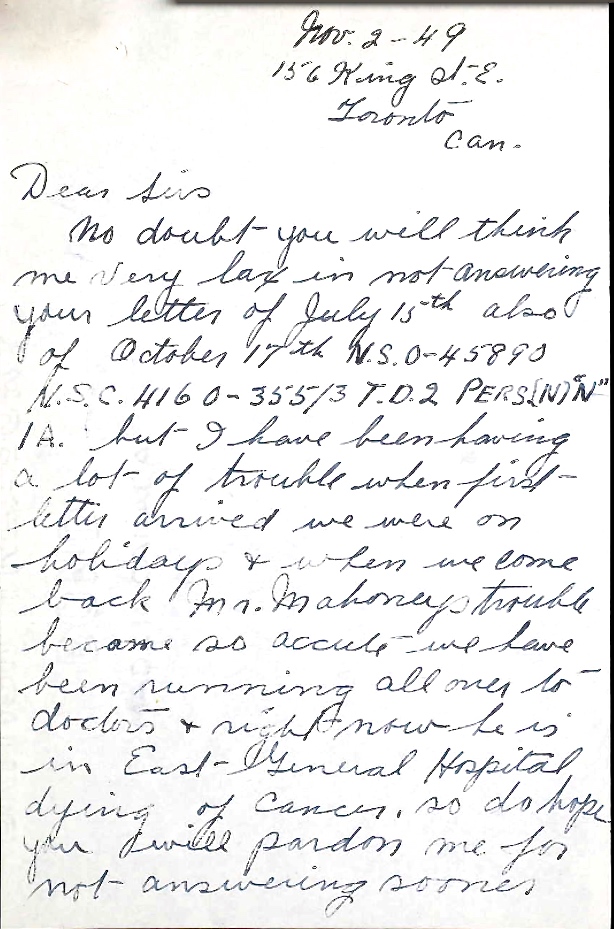 Nov. 2-49
156 King St. E.
Toronto
Can.
Dear Sirs
No doubt you will think
me very lax in not answering
your letter of July 15th also
of October 17th N.S. 0-45890
N.S.C. 4160-355/3 T.D.2 PERS(N)"N"
1A. but I have been having
a lot of trouble when first
letter arrived we were on
holidays & when we come
back Mr. Mahoneys trouble
became so accute we have
been running all over to
doctors & right now he is
in East General Hospital
dying of cancer, so do hope
you will pardon me for
not answering sooner